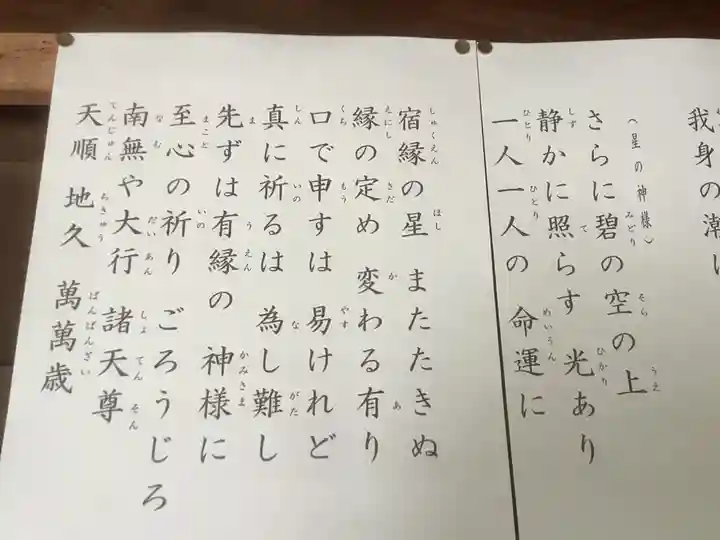 我身の潮
（星の神様）
さらに碧の空の上
静かに照らす 光あり
一人一人の 命運に
宿縁の星 またたきぬ
縁の定め 変わる有り
口で申すは 易けれど
真に祈るは 為し難し
先ずは有縁の 神様に
至心の祈り ごろうじろ
南無や大行 諸天尊
天順 地久 萬萬歳